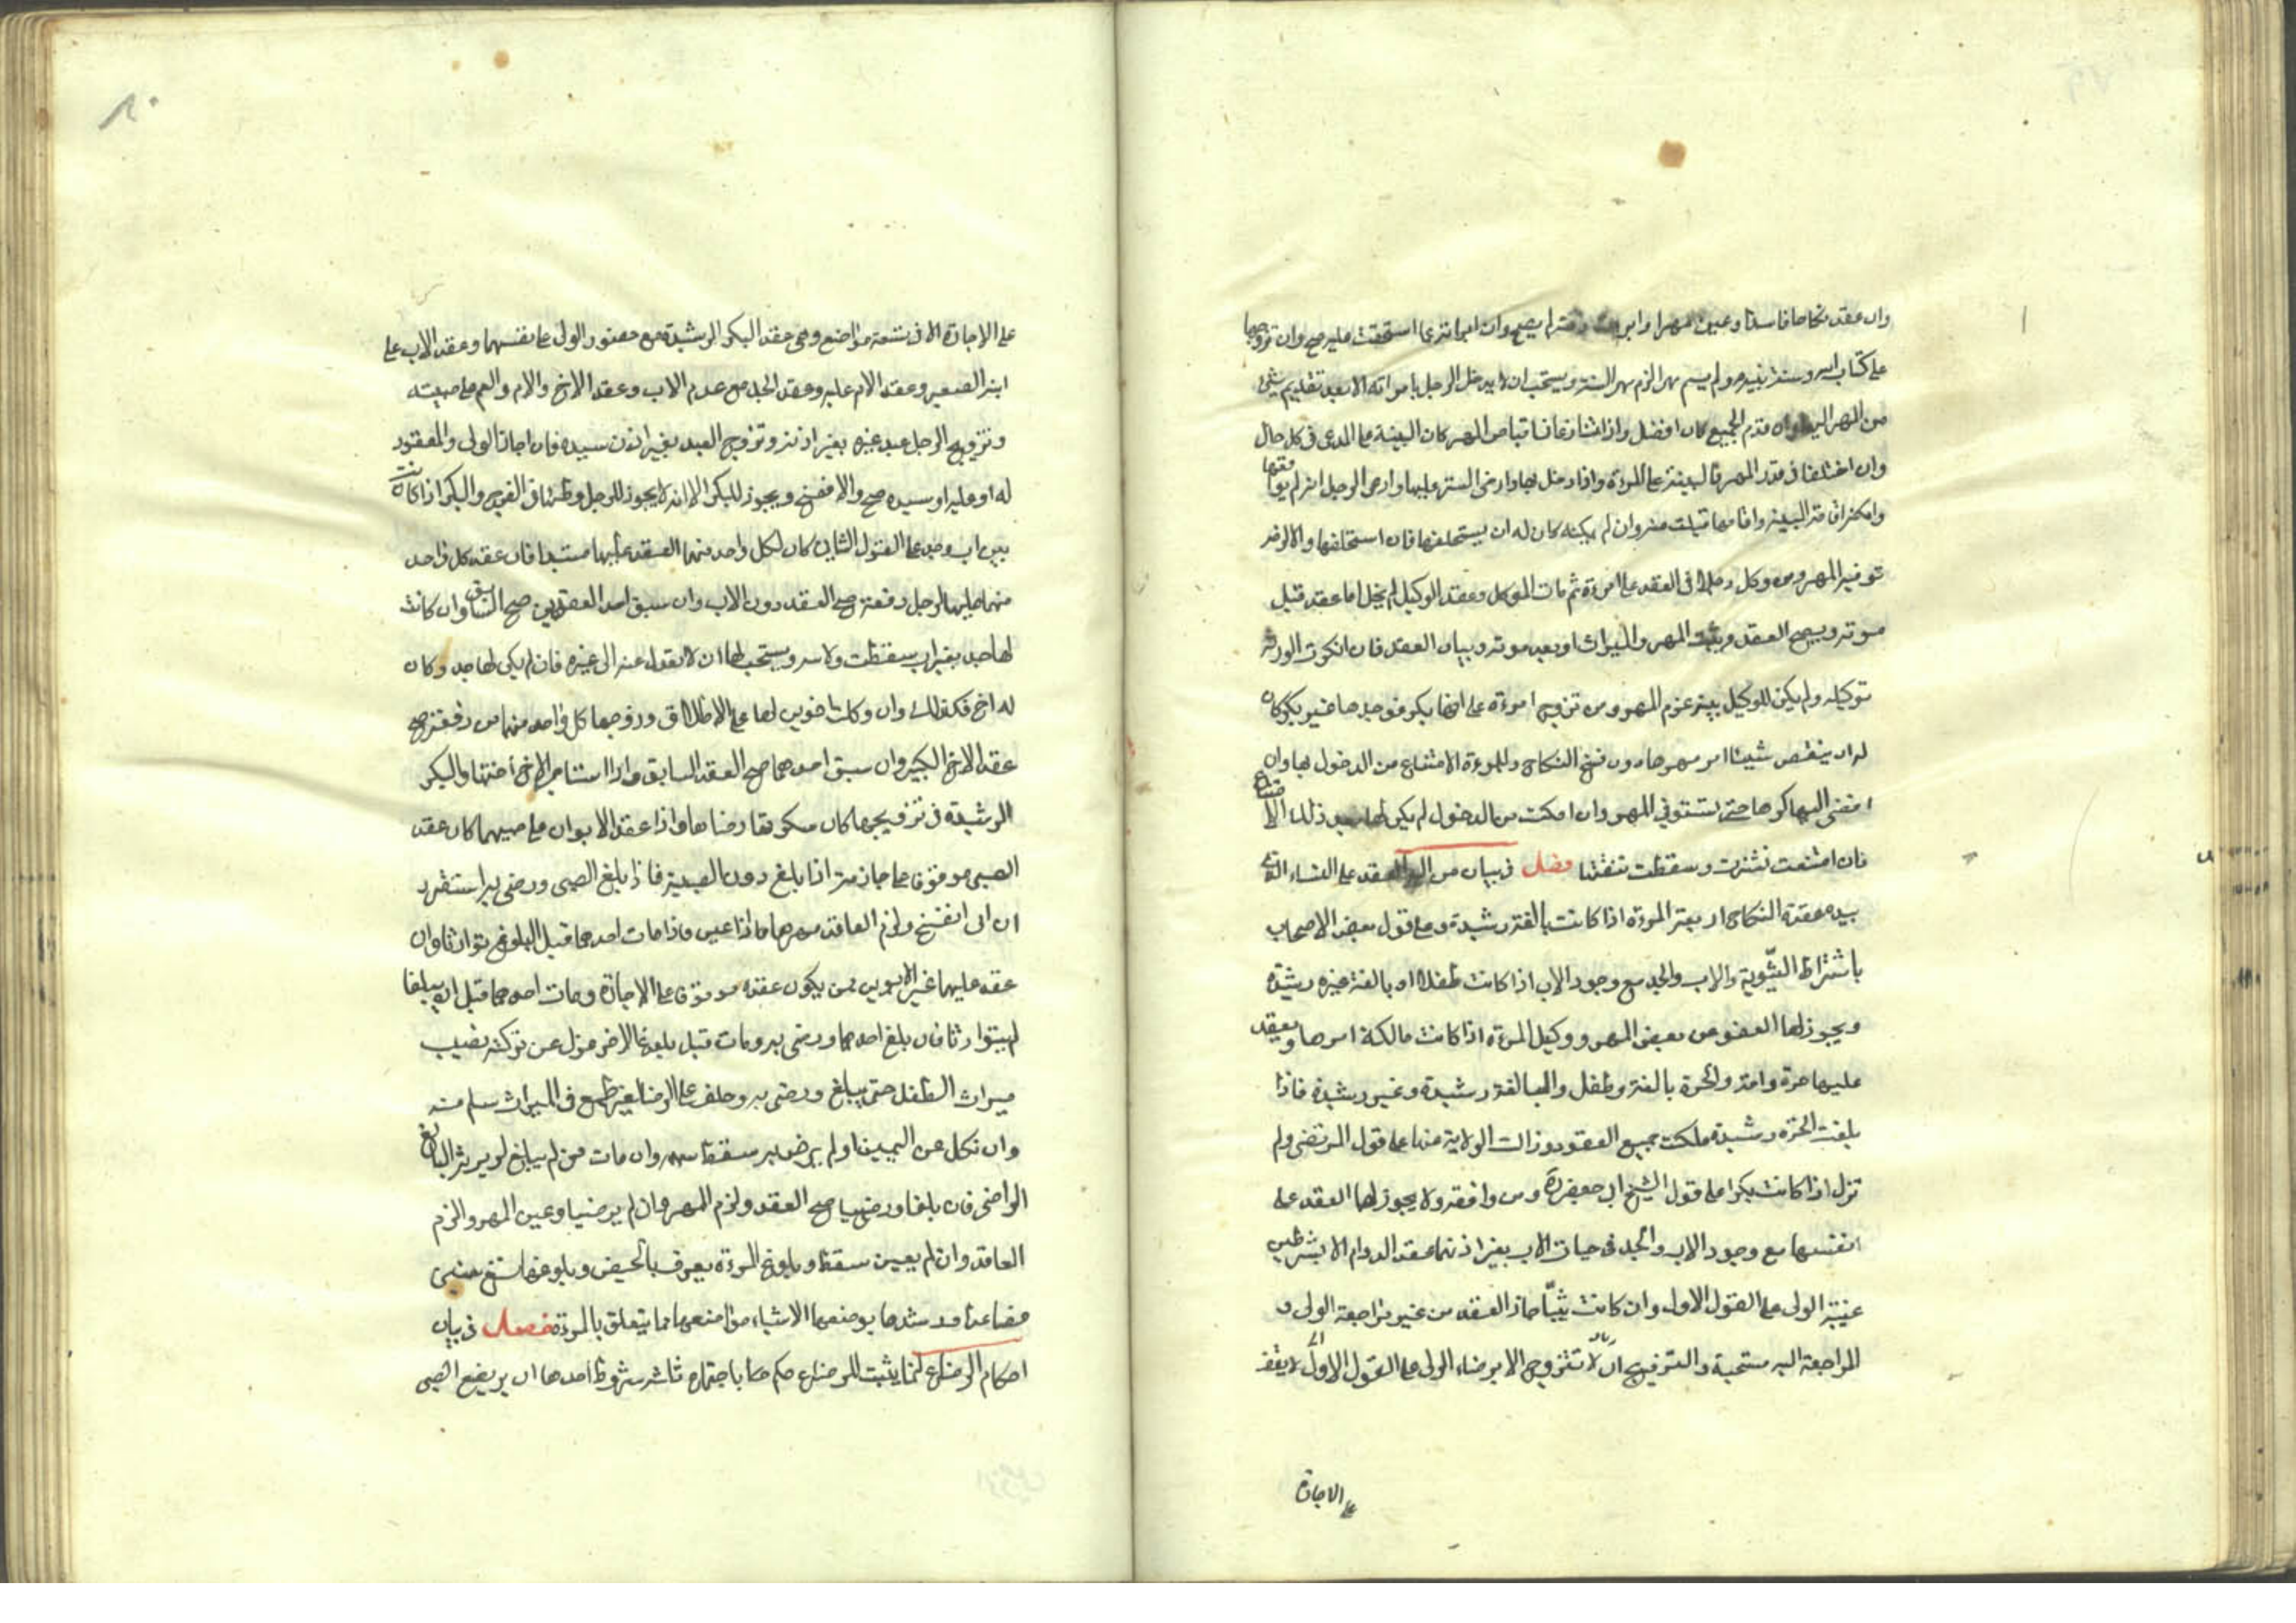 وان عقد نكاحا فاسدا وعين مهرا وابرأت ذمته لم يصح وان ابرأته بما استحقت عليه صح وان تزوجها
على كتاب الله وسنة نبيه ولم يسم مهرا لزم مهر السنة ويستحب ان لا يدخل الرجل بامرأته الا بعد تقديم شئ
من المهر اليها وان قدم الجميع كان افضل واذا تنازعا في قباض المهر كان البينة على المدعى في كل حال
وان اختلفا في قدر المهر فالبينة على المرءة واذا دخل بها وارخى الستر عليها وادعى الرجل انه لم يواقعها
وامكنه اقامة البينة واقامها قبلت منه وان لم يمكنه كان له ان يستحلفها فان استحلفها والا لزمه
توفير المهر ومن وكل رجلا في العقد على امرءة ثم مات الموكل وعقد الوكيل لم يخل اما عقد قبل
موته ويصح العقد ويثبت المهر والميراث او بعد موته وبيان العقد فان انكرت الورثة
توكيله ولم يكن للوكيل بينة غرم المهر ومن تزوج امرءة على انها بكر فوجدها غير بكر كان
له ان ينقص شيئا من مهرها دون فسخ النكاح وللمرءة الامتناع من الدخول بها وان
افضى اليها كرها حتى تستوفي المهر وان امكنت من الدخول لم يكن لها بعد ذلك الامتناع
فان امتنعت نشزت وسقطت نفقتها فصل في بيان من اليه العقد على النساء الذي
بيده عقدة النكاح اربعة المرءة اذا كانت بالغة رشيدة وعلى قول بعض الاصحاب
باشتراط الثيوبة والاب والجد مع وجود الاب اذا كانت طفلا او بالغة غير رشيدة
ويجوز لها العفو عن بعض المهر ووكيل المرءة اذا كانت مالكة امرها ويعقد
عليها حرة وامة والحرة بالغة وطفل والبالغة رشيدة وغير رشيدة فاذا
بلغت الحرة رشيدة ملكت جميع العقود وزالت الولاية عنها على قول المرتضى ولم
تزل اذا كانت بكرا على قول الشيخ ابي جعفر ره ومن وافقه ولا يجوز لها العقد على
نفسها مع وجود الاب والجد في حيات الاب بغير اذنهما عقد الدوام الا بشرطين
غيبة الولى على القول الاول وان كانت ثيبا جاز العقد من غير مراجعة الولى و
المراجعة اليه مستحبة والتزويج ان لا تتزوج الا برضاء الولى على القول الاول لا يقف
على الاجازة
على الاجازة الا في تسعة مواضع وهى عقد البكر الرشيدة مع حضور الولى على نفسها وعقد الاب على
ابنه الصغير وعقد الام عليه وعقد الجد مع عدم الاب وعقد الاخ والام والعم على صبيته
وتزويج الرجل عبد غيره بغير اذنه وتزويج العبد بغير اذن سيده فان اجاز الولى والمعقود
له او عليه او سيده صح والا انفسخ ويجوز للبكر الا انه لا يجوز للرجل وطئها في الفرج والبكر اذا كانت
بين اب وجد على القول الثاني كان لكل واحد منهما العقد عليها مستبدا فان عقد كل واحد
منهما عليها لرجل دفعة صح العقد دون الاب وان سبق احد العقدين صح السابق وان كانت
لها جد بغير اب سقطت ولايته ويستحب لها ان لا تعدل عنه الى غيره فان لم يكن لها جد وكان
له اخ فكذلك وان وكلت اخوين لها على الاطلاق وزوجها كل واحد منهما من دفعة صح
عقد الاخ الكبير وان سبق احدهما صح العقد السابق واذا استامر الاخ اختها والبكر
الرشيدة في تزويجها كان سكوتها رضاها واذا عقد الابوان على صبيهما كان عقد
الصبى موقوفا على اجازته اذا بلغ دون الصبية فاذا بلغ الصبى ورضى به استقر و
ان ابى انفسخ ولزم العاقد مهرها اذا عين واذا مات احدهما قبل البلوغ توارثا وان
عقد عليها غير الابوين من يكون عقده موقوفا على الاجازة ومات احدهما قبل ان يبلغا
لم يتوارثا فان بلغ احدهما ورضى به ومات قبل بلوغ الاخر عزل عن تركته نصيب
ميراث الطفل حتى يبلغ ورضى به وحلف على الرضا بغير طمع في الميراث سلم منه
وان نكل عن اليمين او لم يرض به سقط سهمه وان مات من لم يبلغ لم يرثه البالغ
الراضى فان بلغا ورضيا صح العقد ولزم المهر وان لم يرضيا وعين المهر والزم
العاقد وان لم يعين سقط وبلوغ المرءة يعرف بالحيض وبلوغها تسع سنين
فصاعدا ورشدها بوضعها الاشياء مواضعها مما يتعلق بالمرءة فصل في بيان
احكام الرضاع انما يثبت للرضاع حكم ها باجتماع ثلثة شروط احدها ان يرضع الصبى